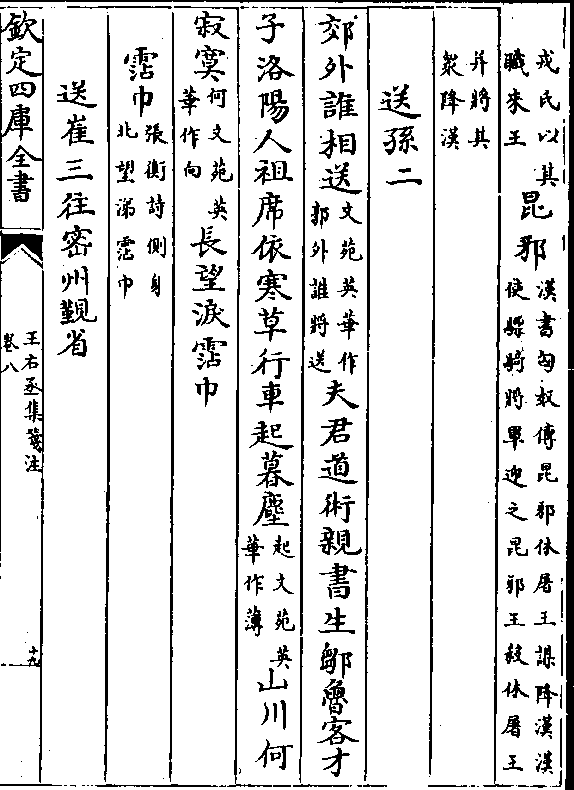 戎氏以其職來王昆邪漢書匈奴傳昆邪休屠王謀降漢漢使驃騎將軍迎之昆邪王殺休屠王
并將其衆降漢
送孫二
郊外誰相送文苑英華作郭外誰將送夫君道術親書生鄒魯客才
子洛陽人祖席依寒草行車起暮塵起文苑英華作薄山川何
寂寞何文苑英華作向長望淚霑巾
霑巾張衡詩側身北望涕霑巾
送崔三往密州覲省
欽定四庫全書
王右丞集箋注
卷八
十九